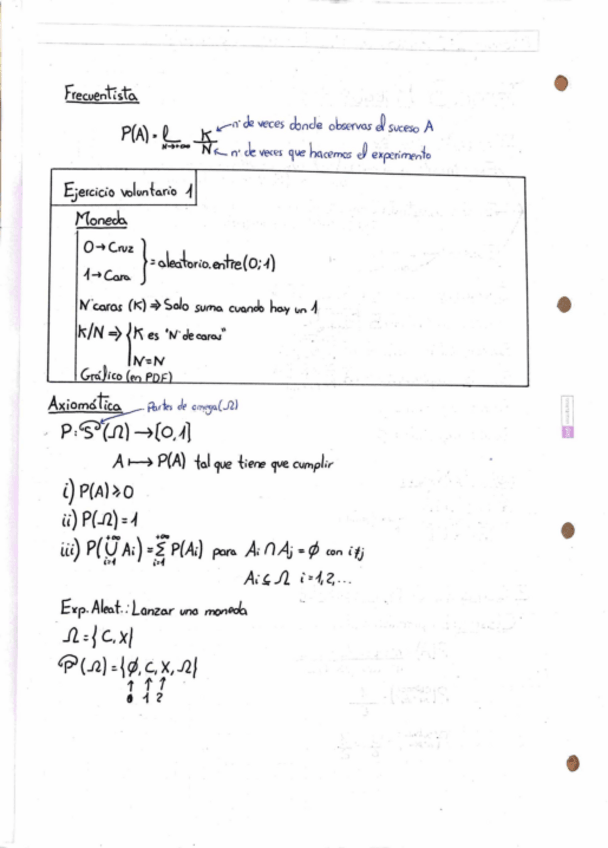 Frecuentista
P(A) = l K/N
N→+∞
nº de veces donde observas el suceso A
nº de veces que hacemos el experimento
Ejercicio voluntario 1
Moneda
0→Cruz
1→Cara
} = aleatorio.entre(0;1)
Nº caras (K) ⇒ Solo suma cuando hay un 1
K/N ⇒ { K es "Nº de caras"
N=N
Gráfico (en PDF)
Axiomática
Partes de omega (Ω)
P: 𝒫(Ω) → [0,1]
A ↦ P(A) tal que tiene que cumplir
i) P(A) ≥ 0
ii) P(Ω) = 1
iii) P(⋃_{i=1}^{+∞} Ai) = Σ_{i=1}^{+∞} P(Ai) para Ai ∩ Aj = ∅ con i≠j
Ai ⊆ Ω i = 1,2,...
Exp. Aleat.: Lanzar una moneda
Ω = {C, X}
𝒫(Ω) = {∅, C, X, Ω}
↑ ↑ ↑
0 1 2